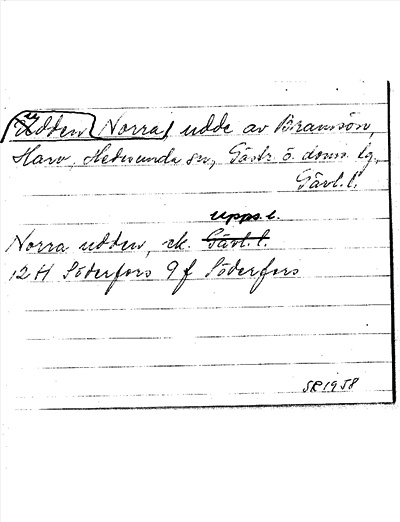 Udden Norra, udde av Bramsön,
Harv, Hedesunda sn, Gästr. ö. doms. lg.,
Gävl. l.
Upps. l.
Norra udden, ek. Gävl. l.
12 H Söderfors 9 f Söderfors
SR 1958